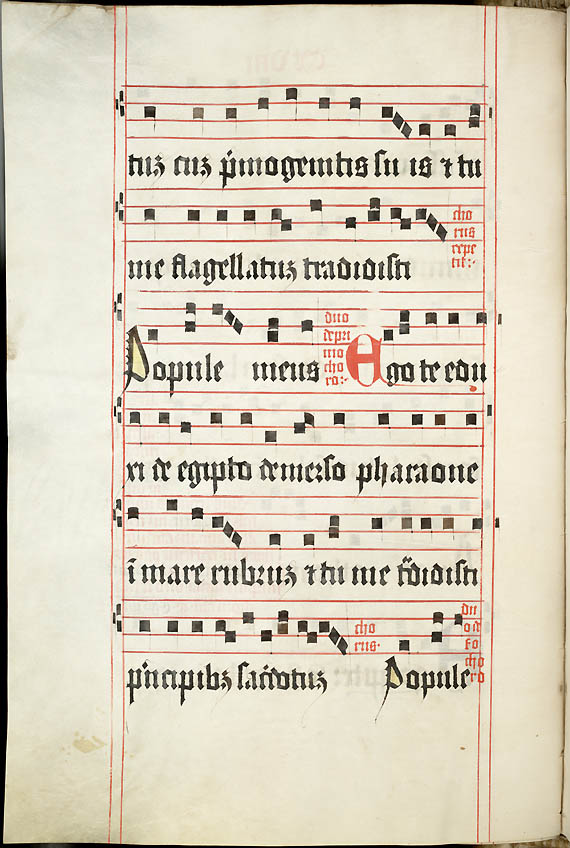 tuʒ cuʒ p̄mogenitis su is ⁊ tu
me flagellatuʒ tradidisti
cho
rus
repe
tit:
Popule meus
duo
de pri
mo
cho
ro:
Ego te edu
xi de egipto demerso pharaone
ī mare rubruʒ ⁊ tu me t̄didisti
p̄ncipibʒ sac̄dotuʒ
cho
rus·
Popule
du
o d̄
cho
ro